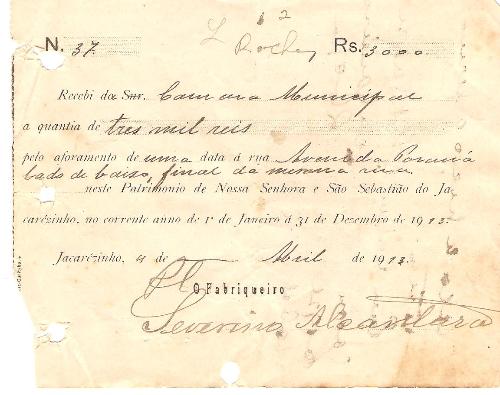 N. 37 Rs. 3000
Recebi do Snr. Camara Municipal
a quantia de tres mil reis
pelo aforamento de uma data á rua Avenida Paraná
lado de baixo, final da mesma rua
neste Patrimonio de Nossa Senhora e São Sebastião do Ja-
carézinho, no corrente anno de 1º de Janeiro á 31 de Dezembro de 1913.
Jacarézinho, 4 de Abril de 1913.
O Fabriqueiro
Severino Alcantara